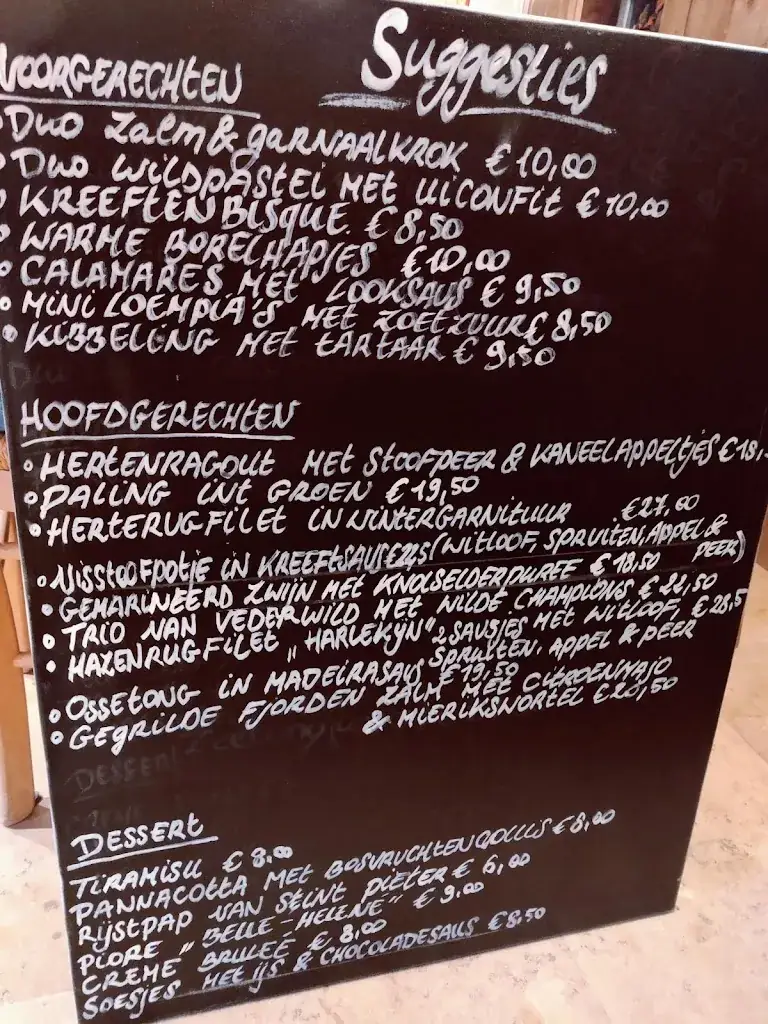 Suggesties
VOORGERECHTEN
DUO ZALM & GARNAALKROK €10,00
DUO WILDPASTEI MET UICONFIT €10,00
KREEFTENBISQUE €8,50
WARME BORELHAPJES €10,00
CALAMARES MET LOOKSAUS €9,50
MINI LOEMPIA'S MET ZOETZUUR €8,50
KIBBELING MET TARTAAR €9,50
HOOFDGERECHTEN
HERTENRAGOUT MET STOOFPEER & KANEELAPPELTJES €18,
PALING INT GROEN €19,50
HERTERUGFILET IN WINTERGARNITUUR €27,00
(WITLOOF, SPRUITEN, APPEL & PEER)
VISSTOOFPOTJE IN KREEFTSAUS €22,5
GEMARINEERD ZWIJN MET KNOLSELDERPUREE €18,50
TRIO VAN VEDERWILD MET WILDE CHAMPIONS €22,50
HAZENRUGFILET "HARLEKYN" 2 SAUSJES MET WITLOOF, €28,5
SPRUITEN, APPEL & PEER
OSSETONG IN MADEIRASAUS €19,50
GEGRILDE FJORDEN ZALM MET CITROENMAJO
& MIERIKSWORTEL €20,50
DESSERT
TIRAMISU €8,00
PANNACOTTA MET BOSVRUCHTENCOULIS €8,00
RIJSTPAP VAN STINT DIETER €6,00
PIORE "BELLE-HELENE" €9,00
CREME BRULEE €8,00
SOESJES MET IJS & CHOCOLADESAUS €8,50